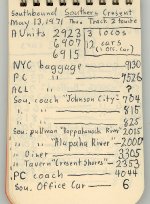 Southbound Southern Crescent
May 13, 1971 Thru Track 2 Route
A Units 2923 3 locos
6907 12 cars
6915 (1 Off. car)
NYC baggage 9130
PC " 7526
ACL " ?
Sou. coach "Johnson City" 704
" " 815
" " 844
" " 825
Sou. pullman 2015
" "Altapaha River" 2000
" Diner 3305
" Tavern "Crescent Shores" 2353
PC coach 4044
Sou. Office Car 6